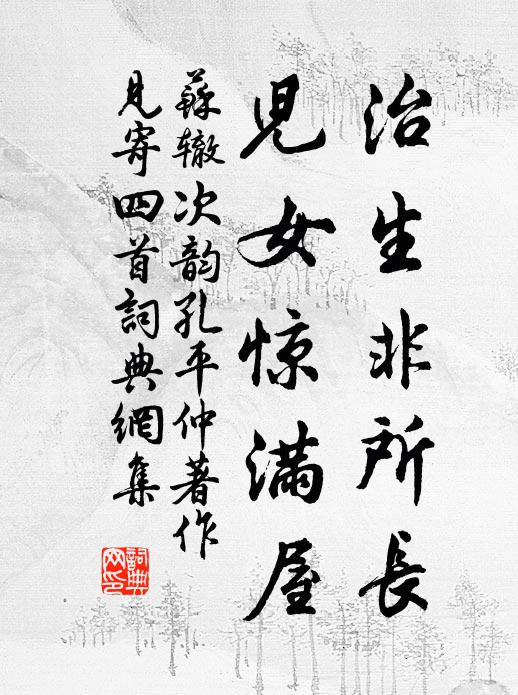 治生非所長
児女惊滿屋
蘇辙次韵孔平仲著作
見寄四首詞典網集
詞典
网印